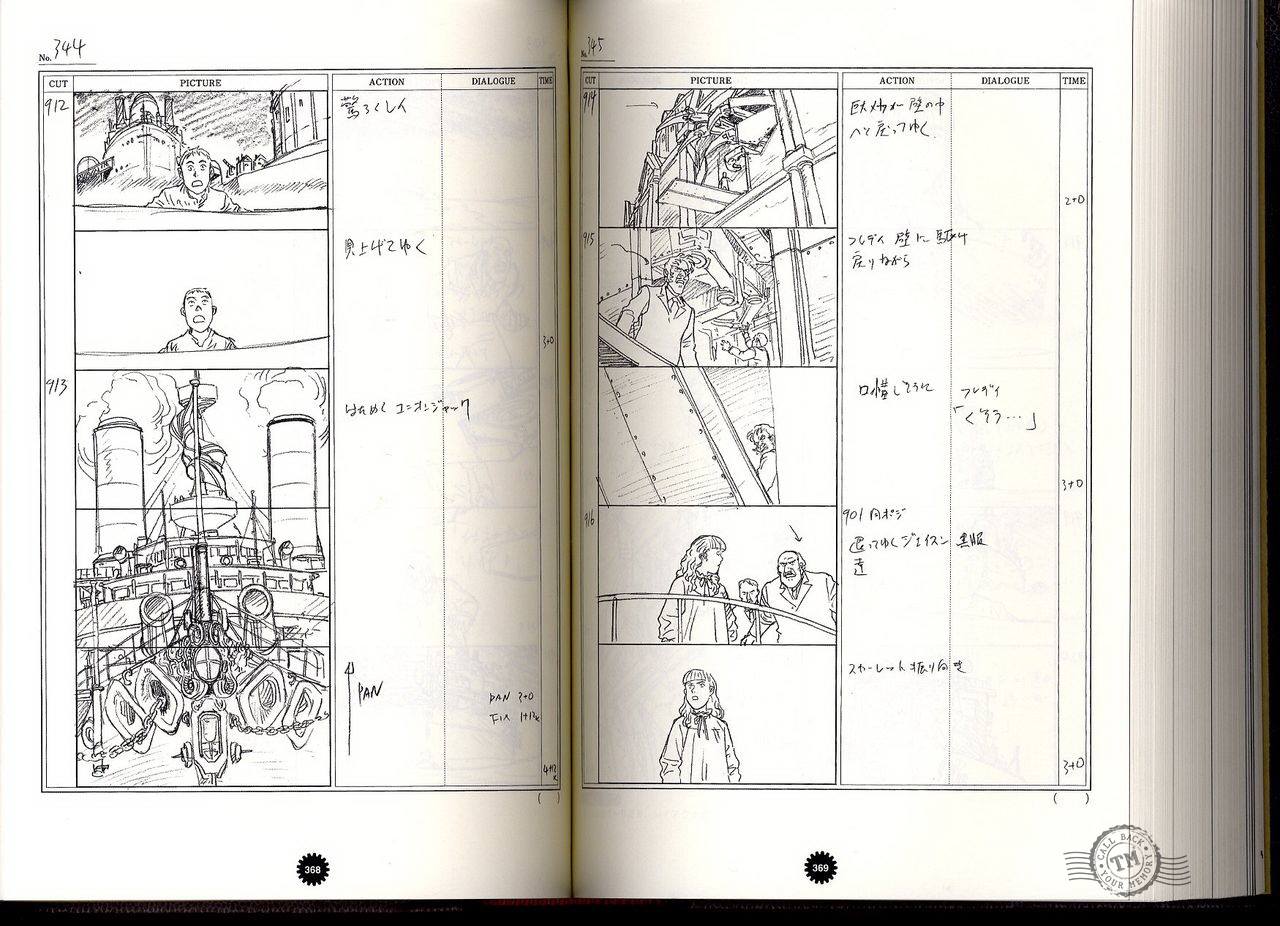 No. 344
CUT PICTURE ACTION DIALOGUE TIME
912
驚ろくレイ
見上げてゆく
3+0
913
はためくユニオンジャック
PAN
PAN 3+0
FIX 1+12k
4+12k
( )
368
No. 345
CUT PICTURE ACTION DIALOGUE TIME
914
巨大な
壁の中
へと戻ってゆく
2+0
915
フレディ 壁に駆け
戻りながら
口惜しそうに
フレディ
「くそう…」
3+0
916
901 同ポジ
黒服
達
スカーレット振り向き
3+0
( )
369
CALL BACK
TM
YOUR MEMORY